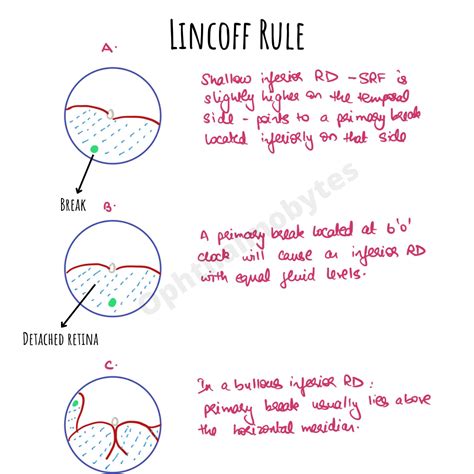 LINCOFF RULE
A.
Shallow inferior RD - SRF is
slightly higher on the temporal
side - points to a primary break
located inferiorly on that side
BREAK
B.
A primary break located at 6'o'
clock will cause an inferior RD
with equal fluid levels.
DETACHED RETINA
C.
In a bullous inferior RD:
primary break usually lies above
the horizontal meridian.
Ophthalmobytes